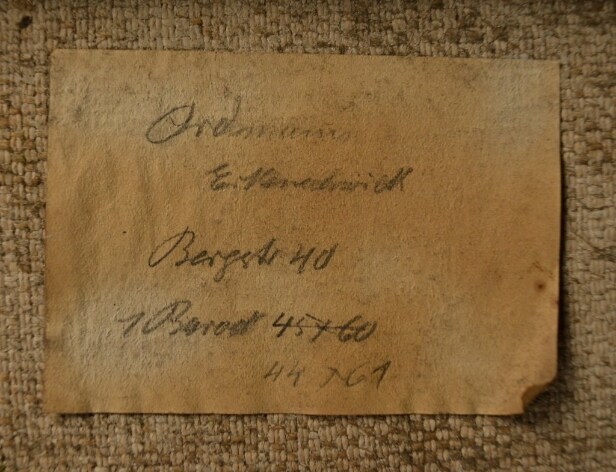 Ordmann
Erkenschwick
Bergstr 40
1 Barock 45x60
44 x 61